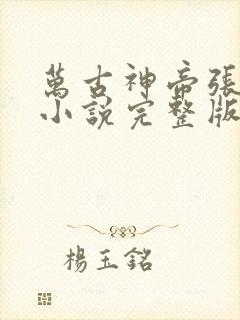 萬古神帝張
小說完整版
楊玉銘